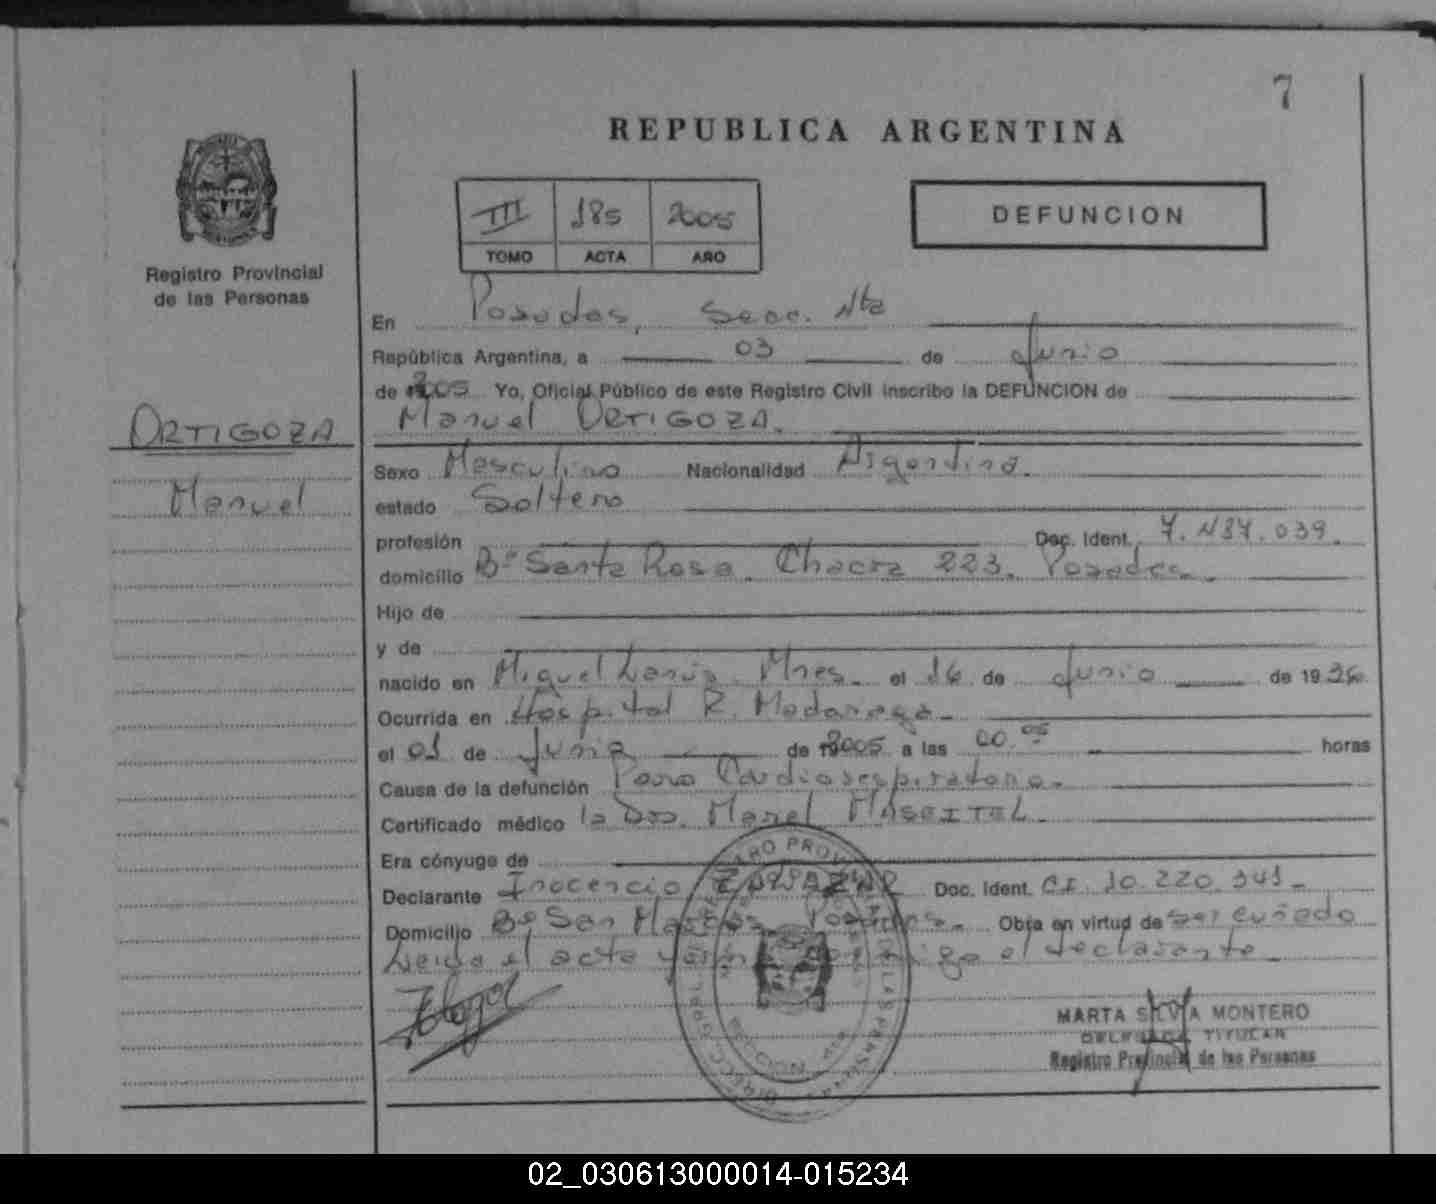 7
REPUBLICA ARGENTINA
III 185 2005
TOMO ACTA AÑO
DEFUNCION
Registro Provincial
de las Personas
En Posadas, Secc. Nta
República Argentina, a 03 de Junio
de 2005 Yo, Oficial Público de este Registro Civil inscribo la DEFUNCION de
Manuel ORTIGOZA.
ORTIGOZA
Manuel
Sexo Masculino Nacionalidad Argentina.
estado Soltero
profesión Doc. Ident. 039.
domicilio Bº Santa Rosa. Chacra 223. Posadas.
Hijo de
y de
nacido en Miguel Lanús. Mnes. el 16 de Junio de 19
Ocurrida en Hospital R. Madariaga.
el 01 de Junio de 2005 a las 00.05 horas
Causa de la defunción Paro Cardiorespiratorio.
Certificado médico la Dra. Mariel
Era cónyuge de
Declarante Inocencio Doc. Ident. CI. 10.220.341.
Domicilio Bº San Marcos. Posadas. Obra en virtud de ser cuñado
Leída el acta firma conmigo el declarante.
MARTA SILVIA MONTERO
DELEGADA TITULAR
Registro Provincial de las Personas
02_030613000014-015234